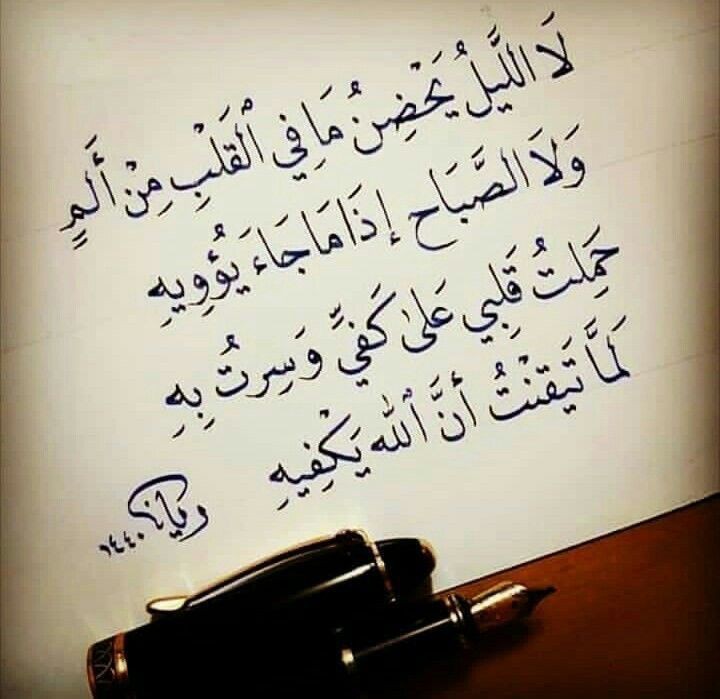 لَا اللَّيلُ يَحْضِنُ مَا فِي الْقَلْبِ مِنْ أَلَمٍ
وَلَا الصَّبَاح إذَا مَا جَاءَ يُؤوِيهِ
حَمِلتُ قَلِبي عَلىٰ كَفيِّ وَسِرتُ بِهِ
لَمَّا تَيَقنْتُ أنَّ ٱللّٰه يَكْفِيهِ
١٤٤٠